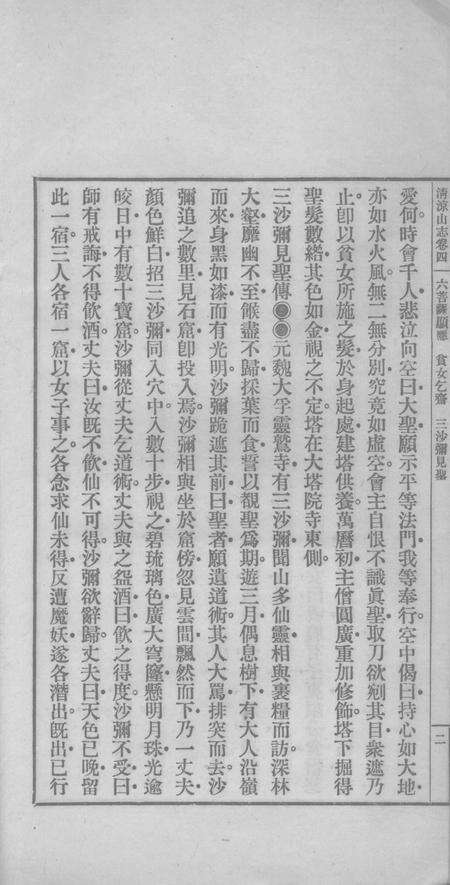 清涼山志卷四 六菩薩顯應 貧女乞齋 三沙彌見聖 二
愛。何時會千人。悲泣向空曰。大聖願示平等法門。我等奉行。空中偈曰。持心如大地。
亦如水火風。無二無分別。究竟如虛空。會主自恨不識眞聖。取刀欲剜其目。衆遮乃
止。卽以貧女所施之髮。於身起處。建塔供養。萬曆初。主僧圓廣。重加修飾。塔下掘得
聖髮數綹。其色如金。視之不定。塔在大塔院寺東側。
三沙彌見聖傳●●元魏大孚靈鷲寺。有三沙彌。聞山多仙靈。相與裹糧而訪。深林
大壑。靡幽不至。餱盡不歸。採葉而食。誓以覩聖爲期。遊三月。偶息樹下。有大人沿嶺
而來。身黑如漆。而有光明。沙彌跪遮其前曰。聖者願遺道術。其人大罵。排突而去。沙
彌追之數里。見石窟卽投入焉。沙彌相與坐於窟傍。忽見雲間飄然而下。乃一丈夫。
顏色鮮白。招三沙彌。同入穴中。入數十步。視之碧琉璃色。廣大穹窿。懸明月珠。光逾
皎日。中有數十寶窟。沙彌從丈夫乞道術。丈夫與之盌酒曰。飮之得度。沙彌不受曰。
師有戒誨。不得飮酒。丈夫曰。汝旣不飮。仙不可得。沙彌欲辭歸。丈夫曰。天色已晚。留
此一宿。三人各宿一窟。以女子事之。各念求仙未得。反遭魔妖。遂各潛出。旣出已行